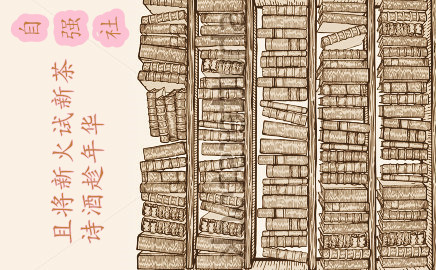 自强社
且将新火试新茶
诗酒趁年华